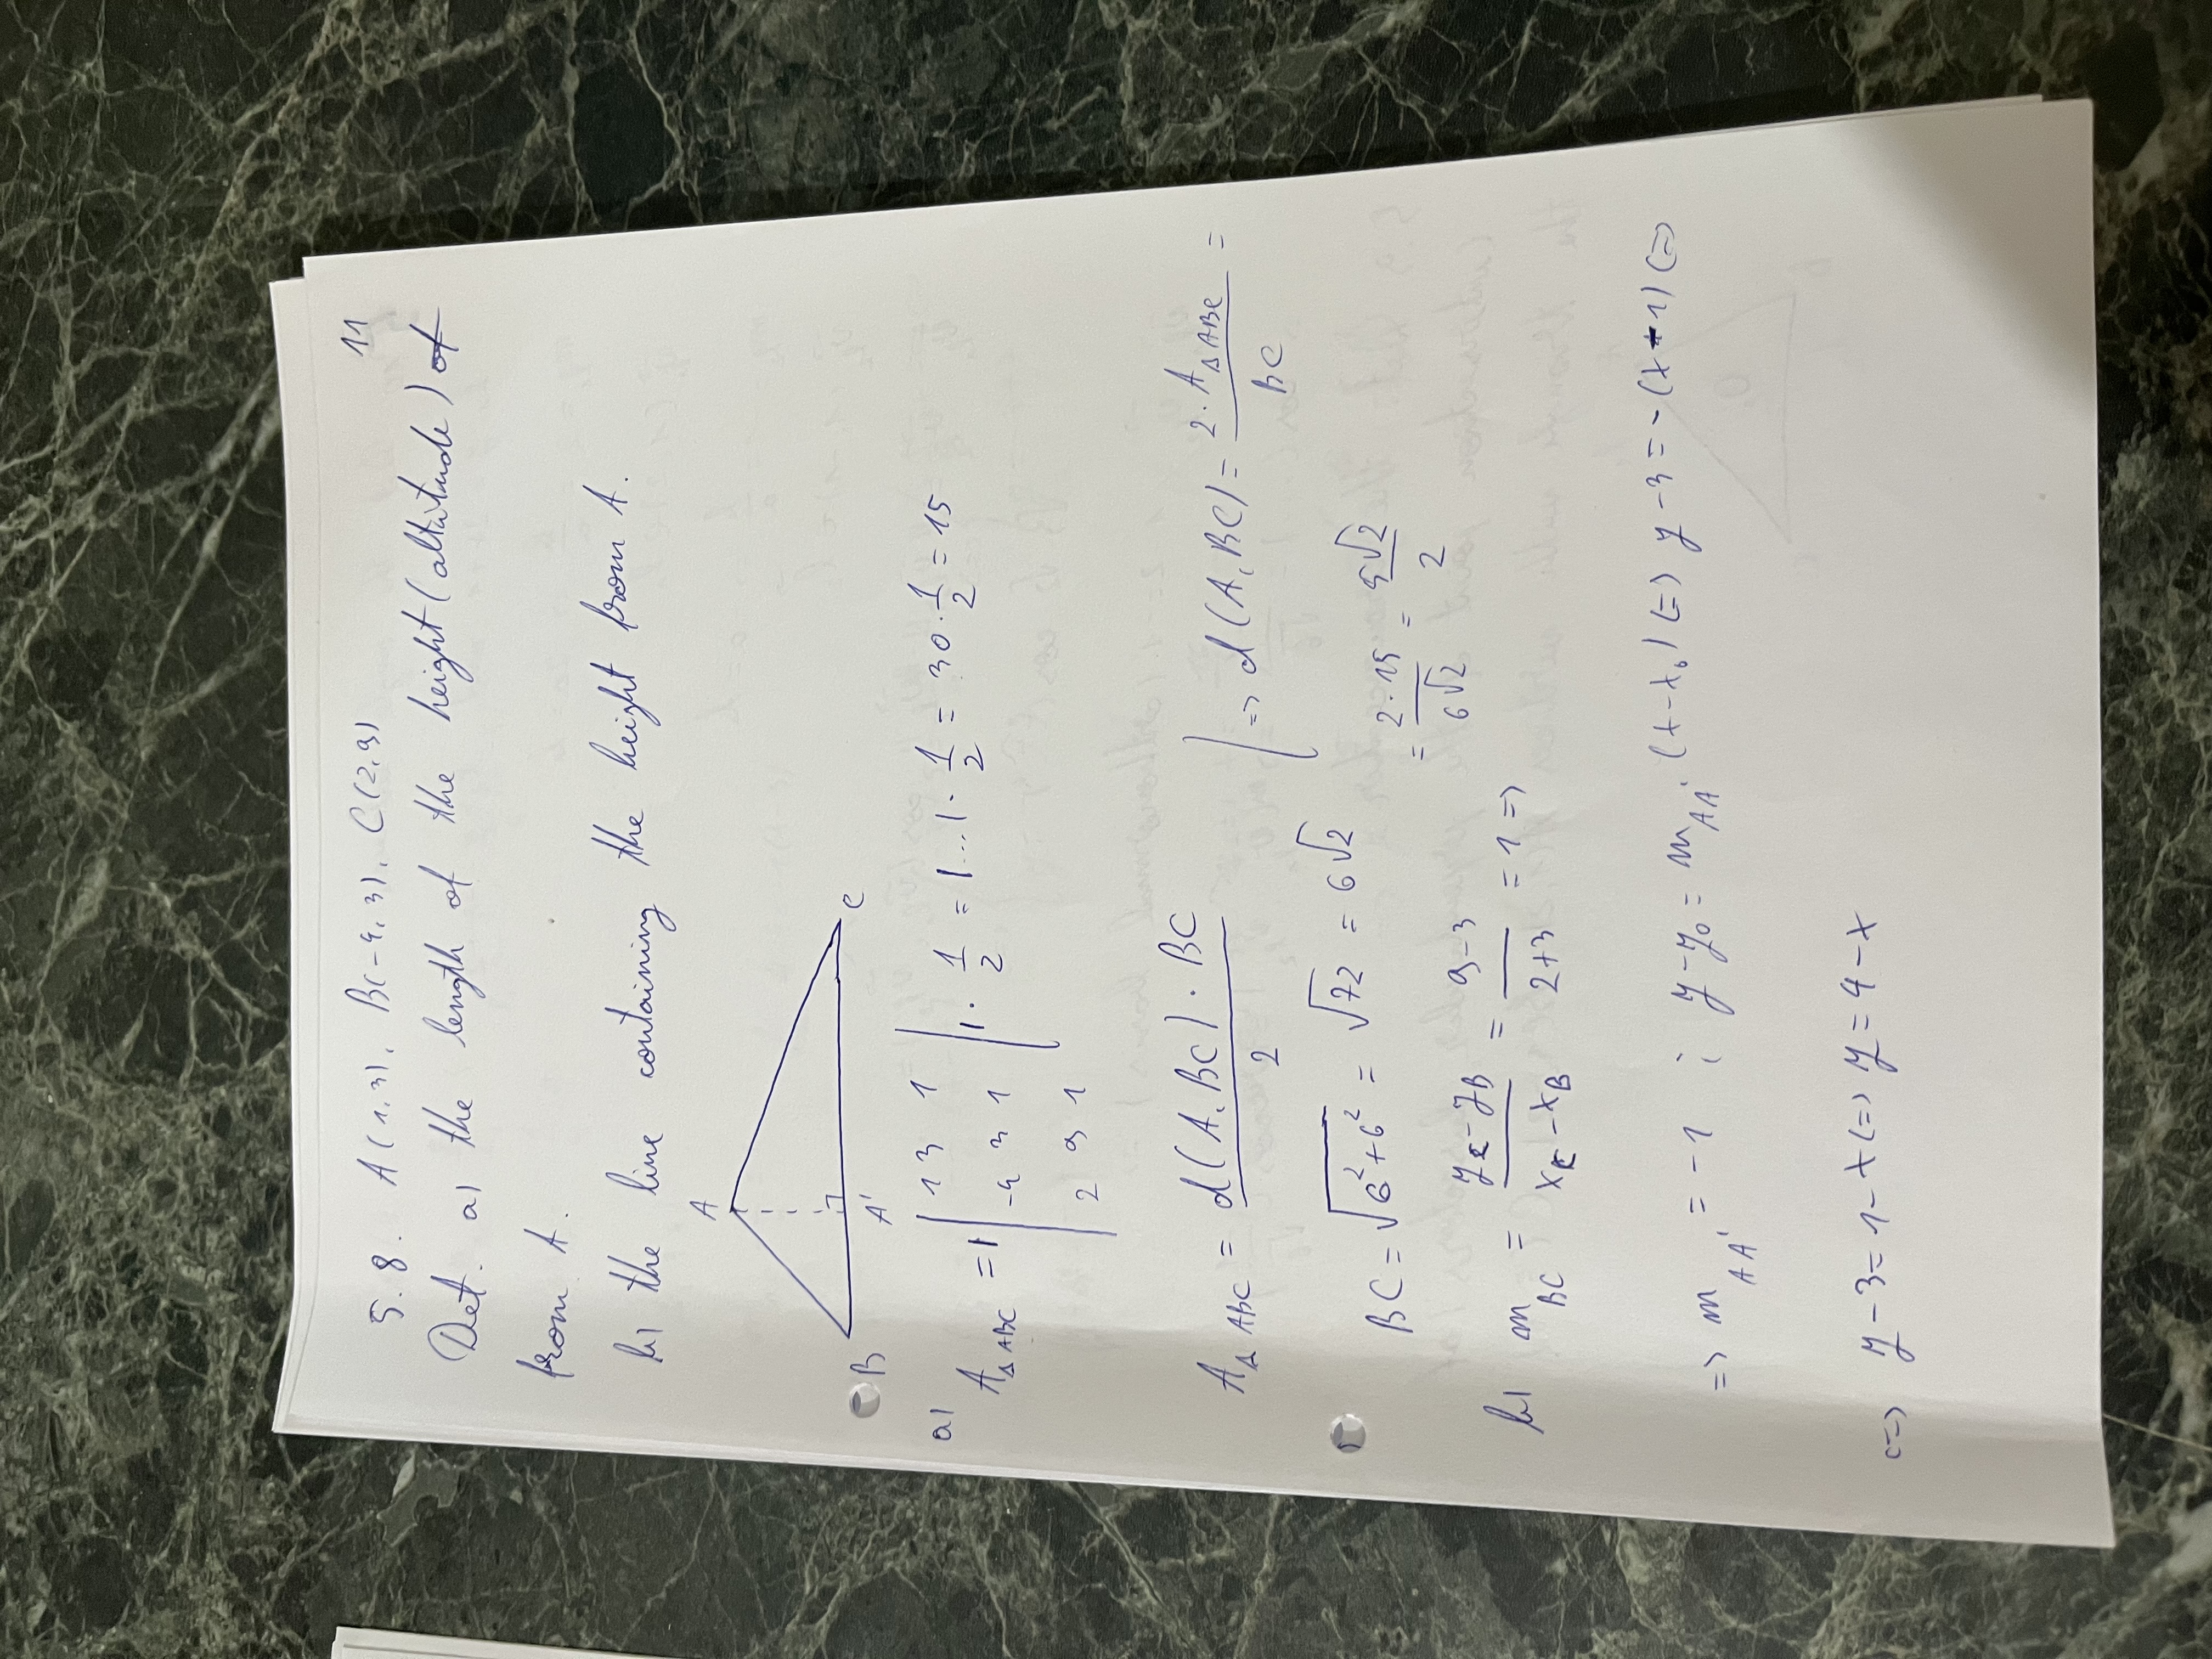 11
5.8. A(1,3), B(-4,3), C(2,9)
Det. a) the length of the height (altitude) of
from A.
b) the line containing the height from A.
A
B A' C
a) A_{Δ ABC} = | | 1 3 1 ; -4 3 1 ; 2 9 1 | | · 1/2 = |...| · 1/2 = 30 · 1/2 = 15
A_{Δ ABC} = (d(A,BC) · BC)/2 | => d(A,BC) = (2 · A_{Δ ABC})/BC =
BC = √(6² + 6²) = √72 = 6√2
= (2 · 15)/(6√2) = (5√2)/2
b) m_{BC} = (y_C - y_B)/(x_C - x_B) = (9-3)/(2+3) = 1 =>
=> m_{AA'} = -1 ; y - y₀ = m_{AA'} (x - x₀) <=> y - 3 = -(x - 1) <=>
<=> y - 3 = 1 - x <=> y = 4 - x